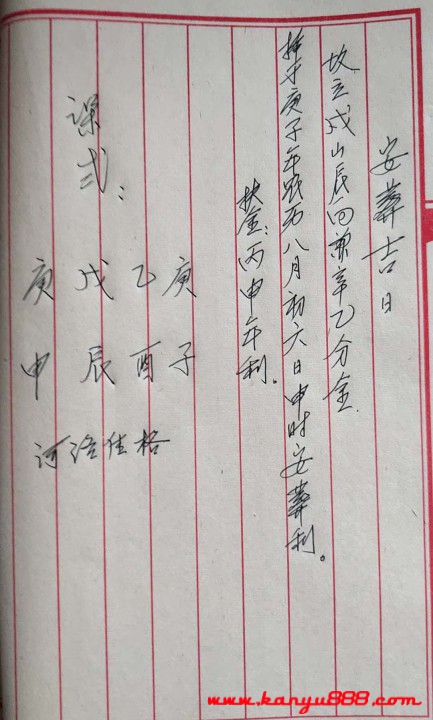 安葬吉日
坟立戌山辰向兼辛乙分金
择于庚子年历八月初六日申时安葬利。
扶金:丙申年利。
课式:
庚戊乙庚
申辰酉子
河洛佳格
www.kanyu888.com